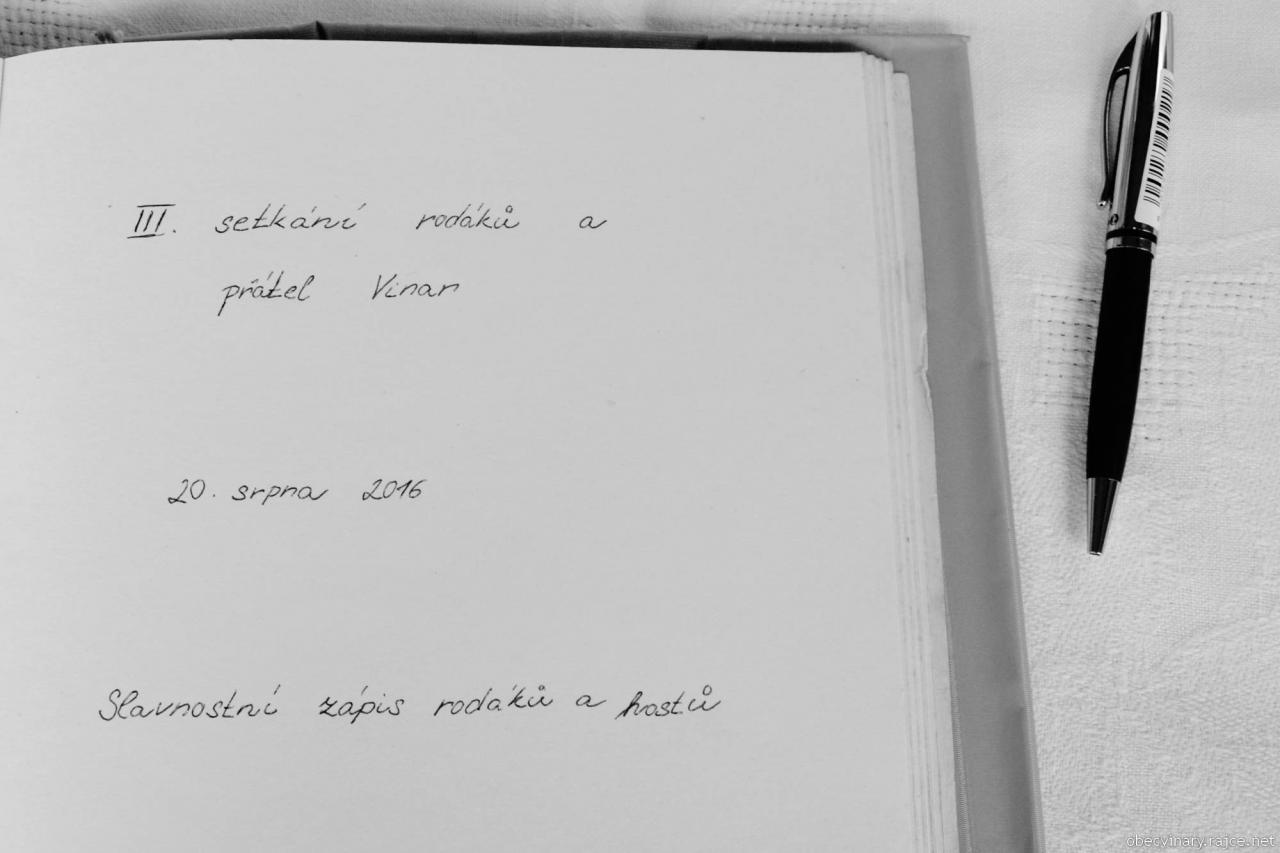 III. setkání rodáků a
přátel Vinar
20. srpna 2016
Slavnostní zápis rodáků a hostů
obecvinary.rajce.net